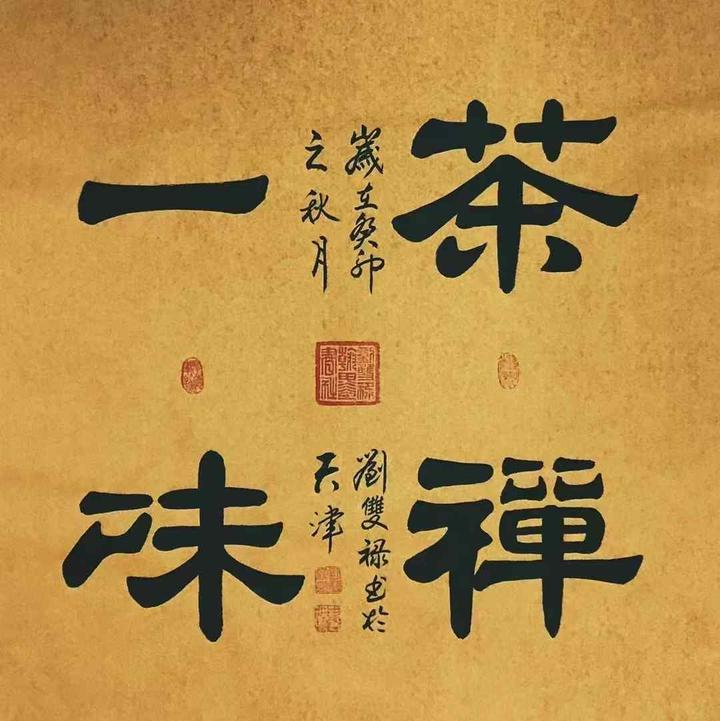 茶禪
一味
歲在癸卯
之秋月
劉雙祿書於
天津